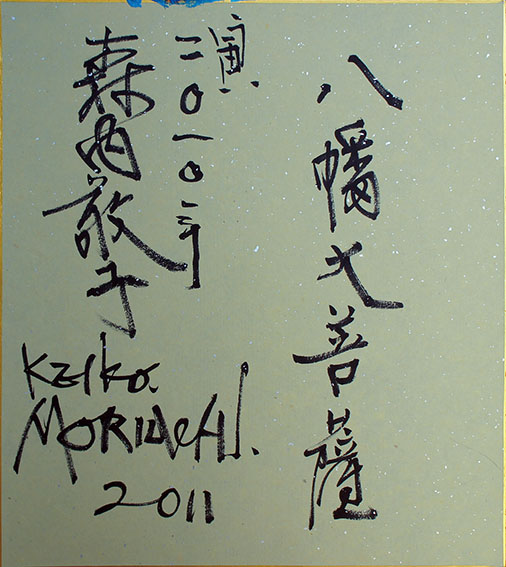 八幡大菩薩
寅
二〇一〇年
森内敬子
KEIKO.
MORIUCHI.
2011